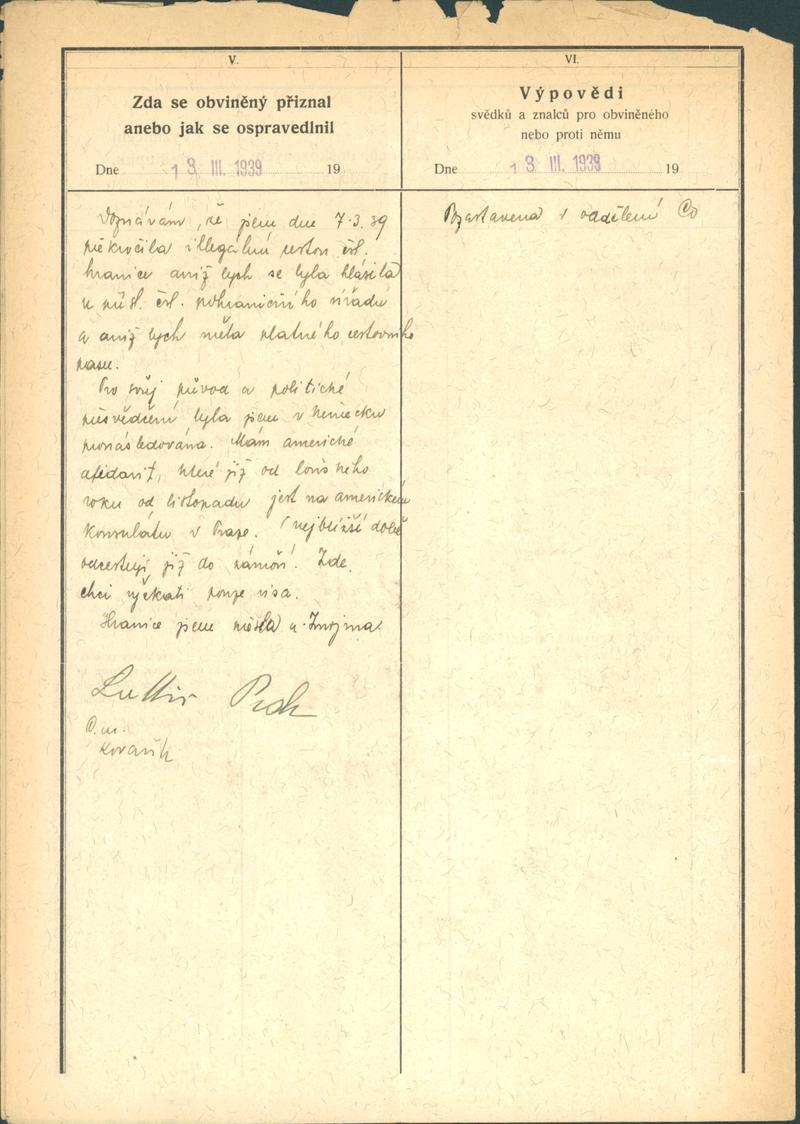 V.
Zda se obviněný přiznal
anebo jak se ospravedlnil
Dne 13 III. 1939 19
Doznávám, že jsem dne 7.3.39
překročila illegálně čsl.
hranice aniž bych se byla hlásila
u přísl. čsl. pohraničního úřadu
a aniž bych měla platného cestovního
pasu.
Pro svůj původ a politické
přesvědčení byla jsem v Německu
pronásledována. Mám americké
afidavit, které již od loňského
roku od listopadu jest na americkém
konsulátu v Praze. V nejbližší době
odcestuji již do zámoří. Zde
chci vyčkati pouze visa.
Hranice jsem přešla u Znojma.
Kovařík
VI.
Výpovědi
svědků a znalců pro obviněného
nebo proti němu
Dne 13 III. 1939 19
v oddělení